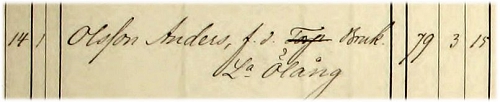 14 1 Olsson Anders, f. d. Bruk. 79 3 15
La Ölång